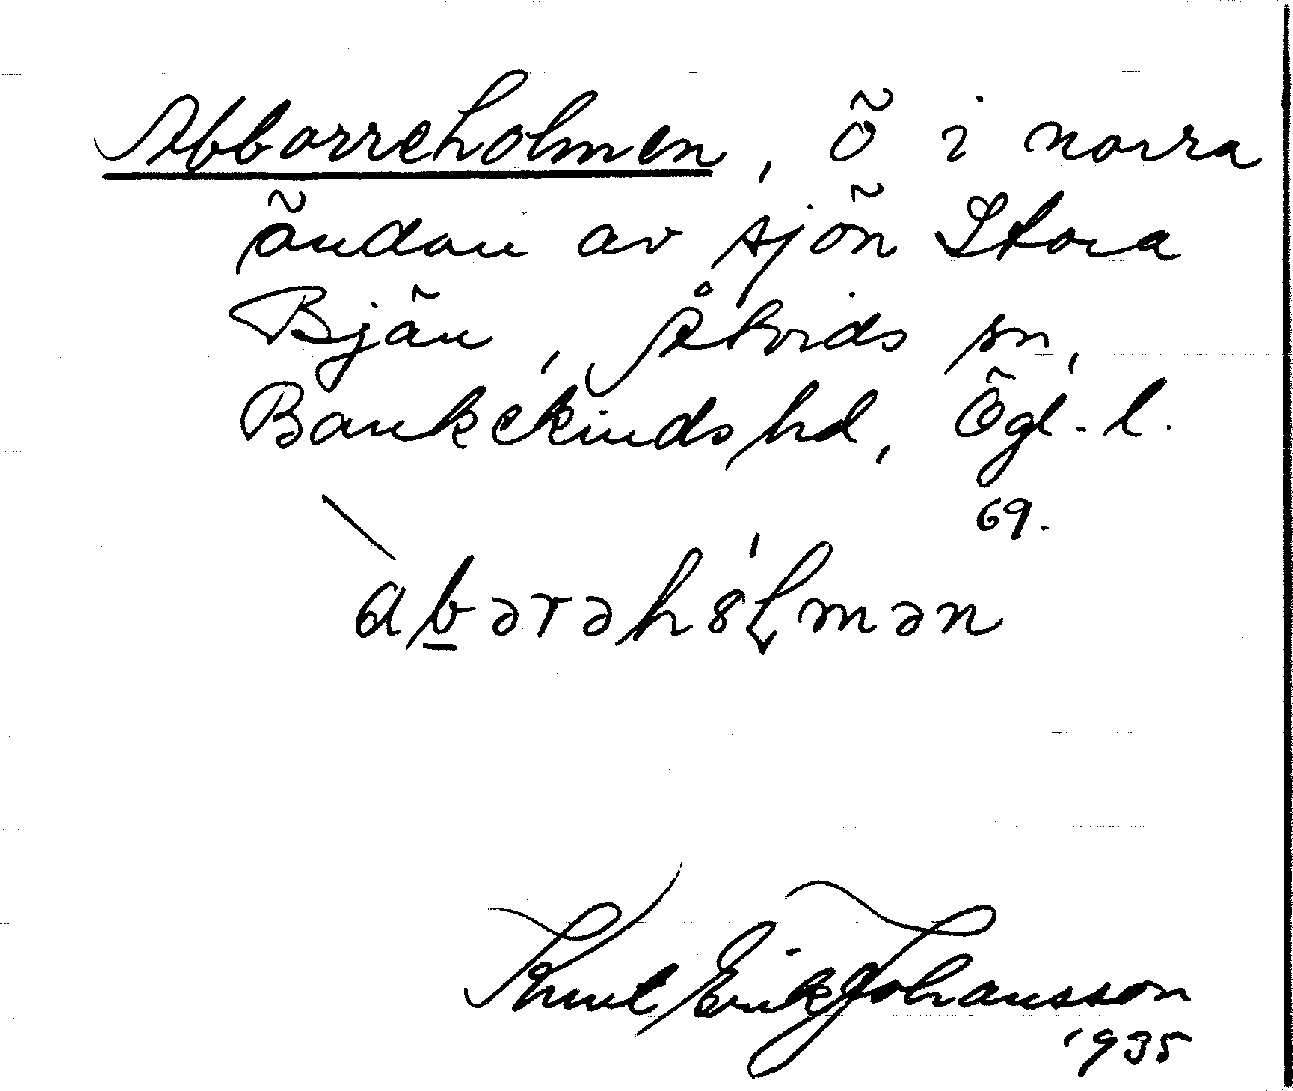 Abborreholmen, ö i norra
ändan av sjön Stora
Bjän, Åtvids sn,
Bankekinds hd, Ögl. l.
69.
abərəhólmən
Knut Erik Johansson
1935